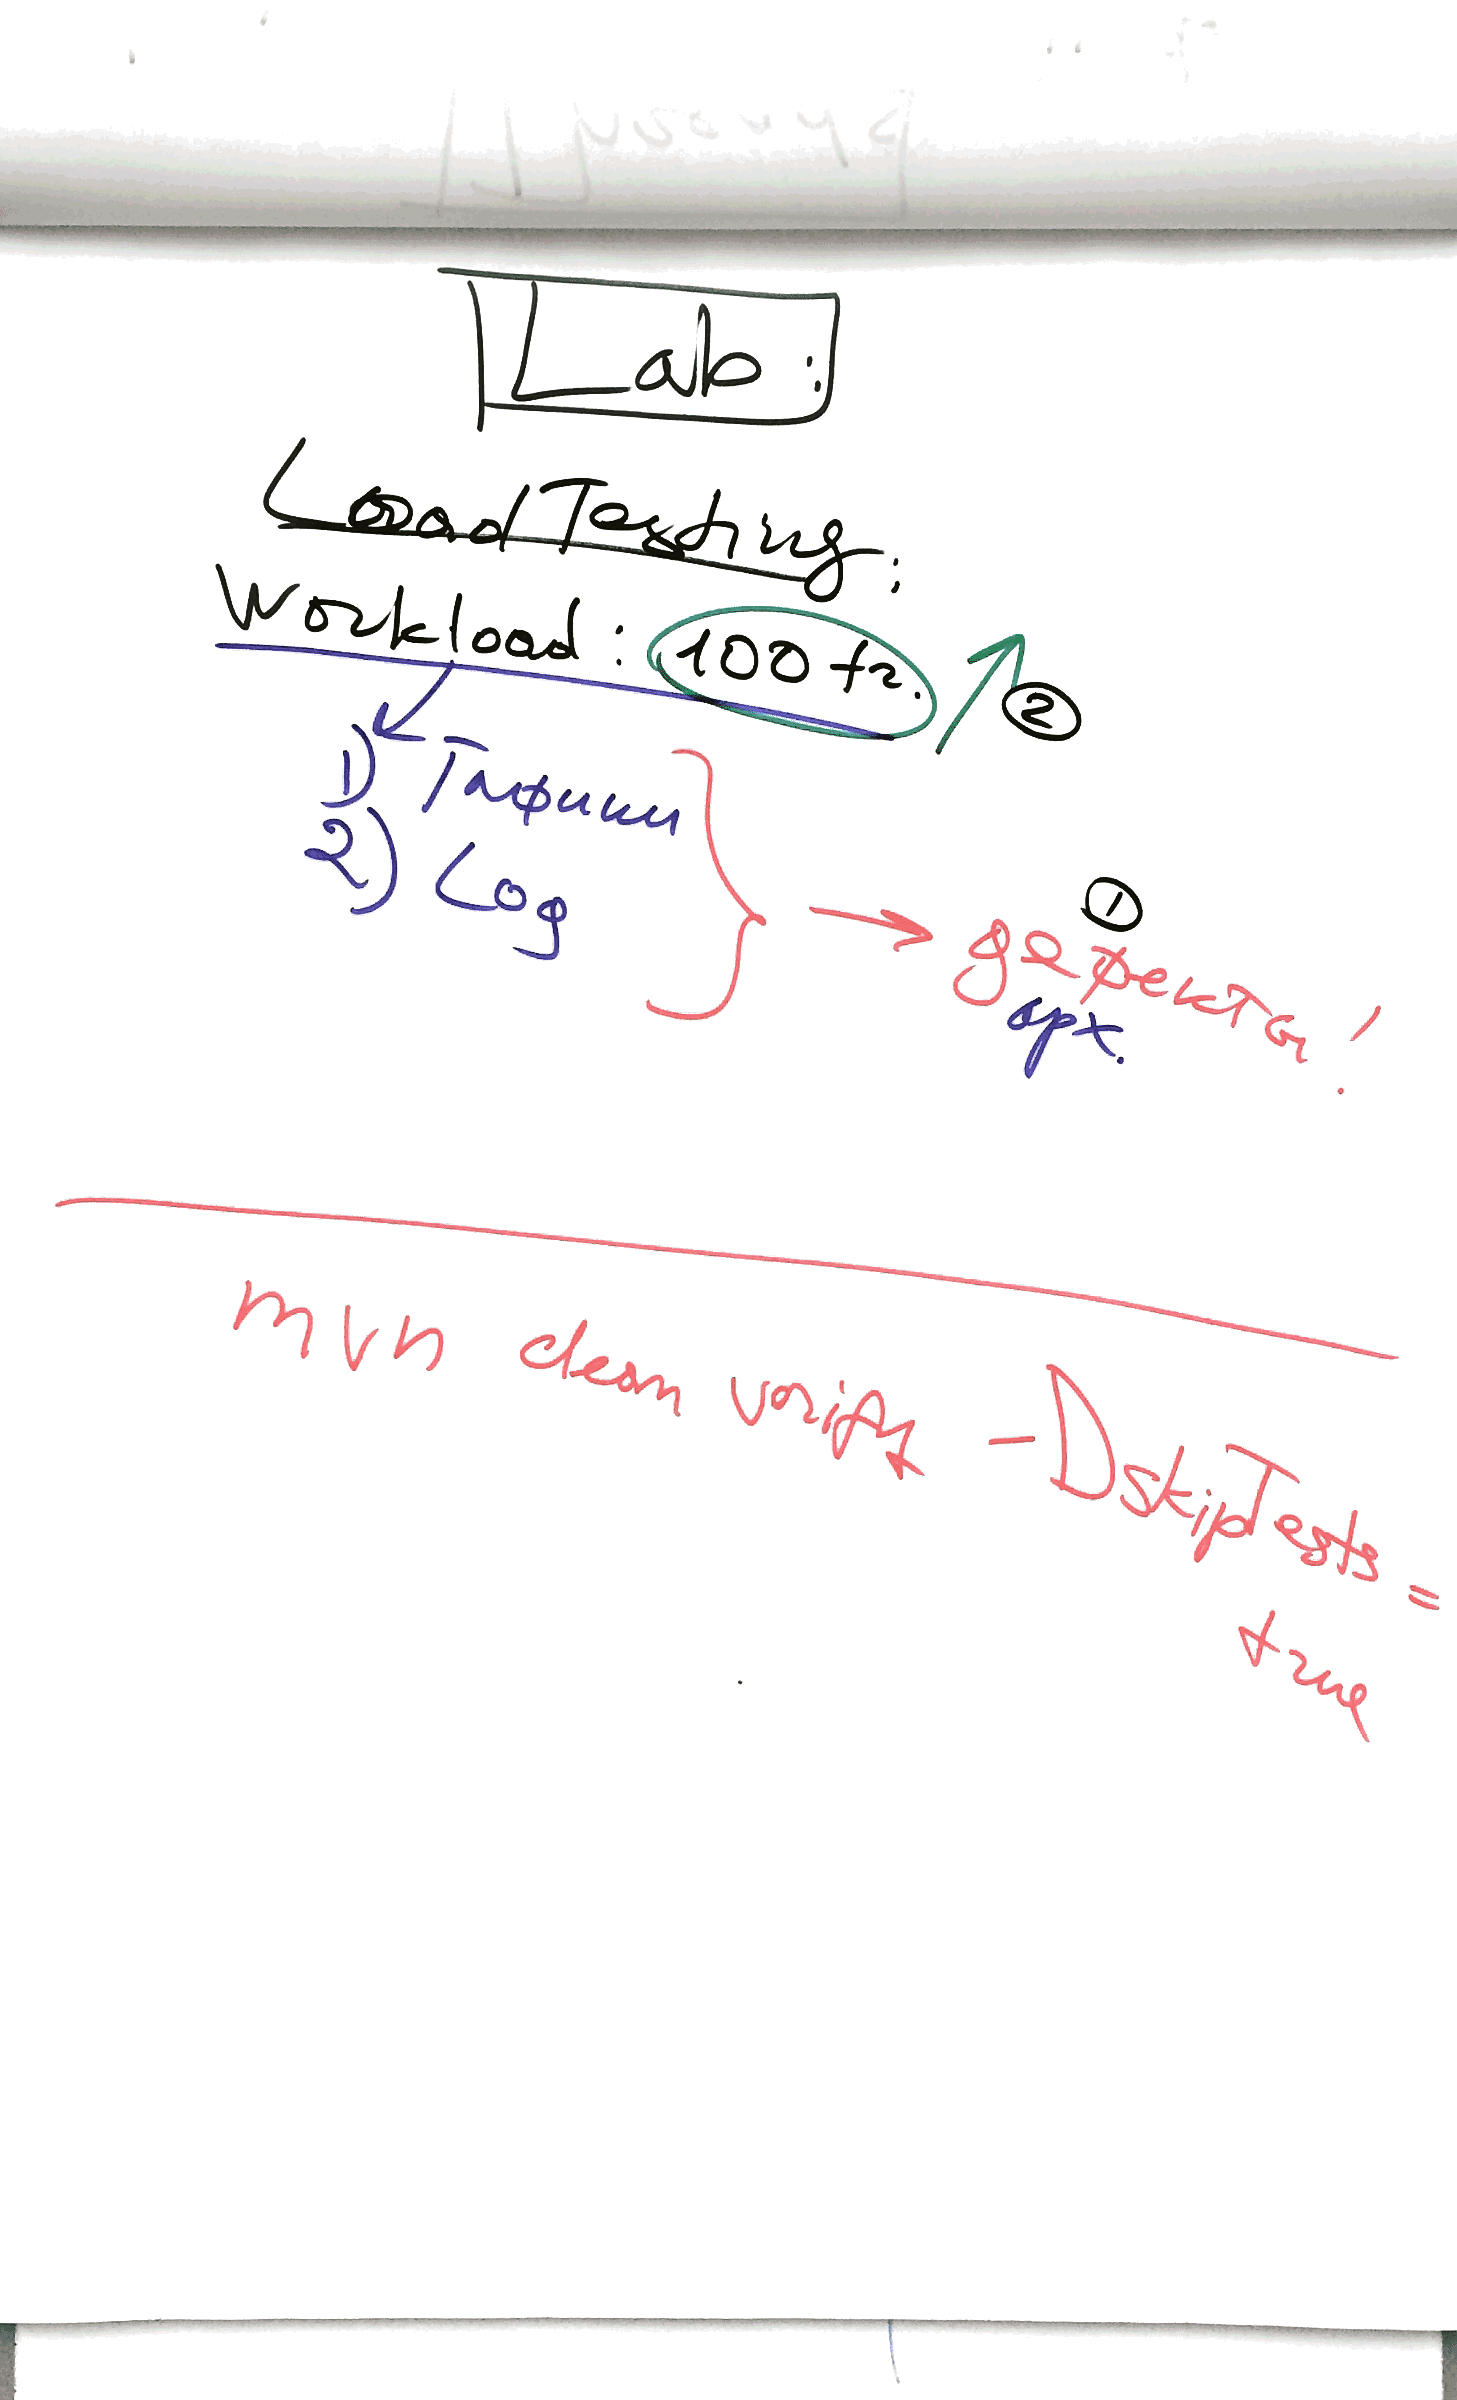 Lab:
Load Testing:
Workload: 100 tr.
②
1) Графики
2) Log
①
дефекты!
арх.
mvn clean verify -DskipTests=
true